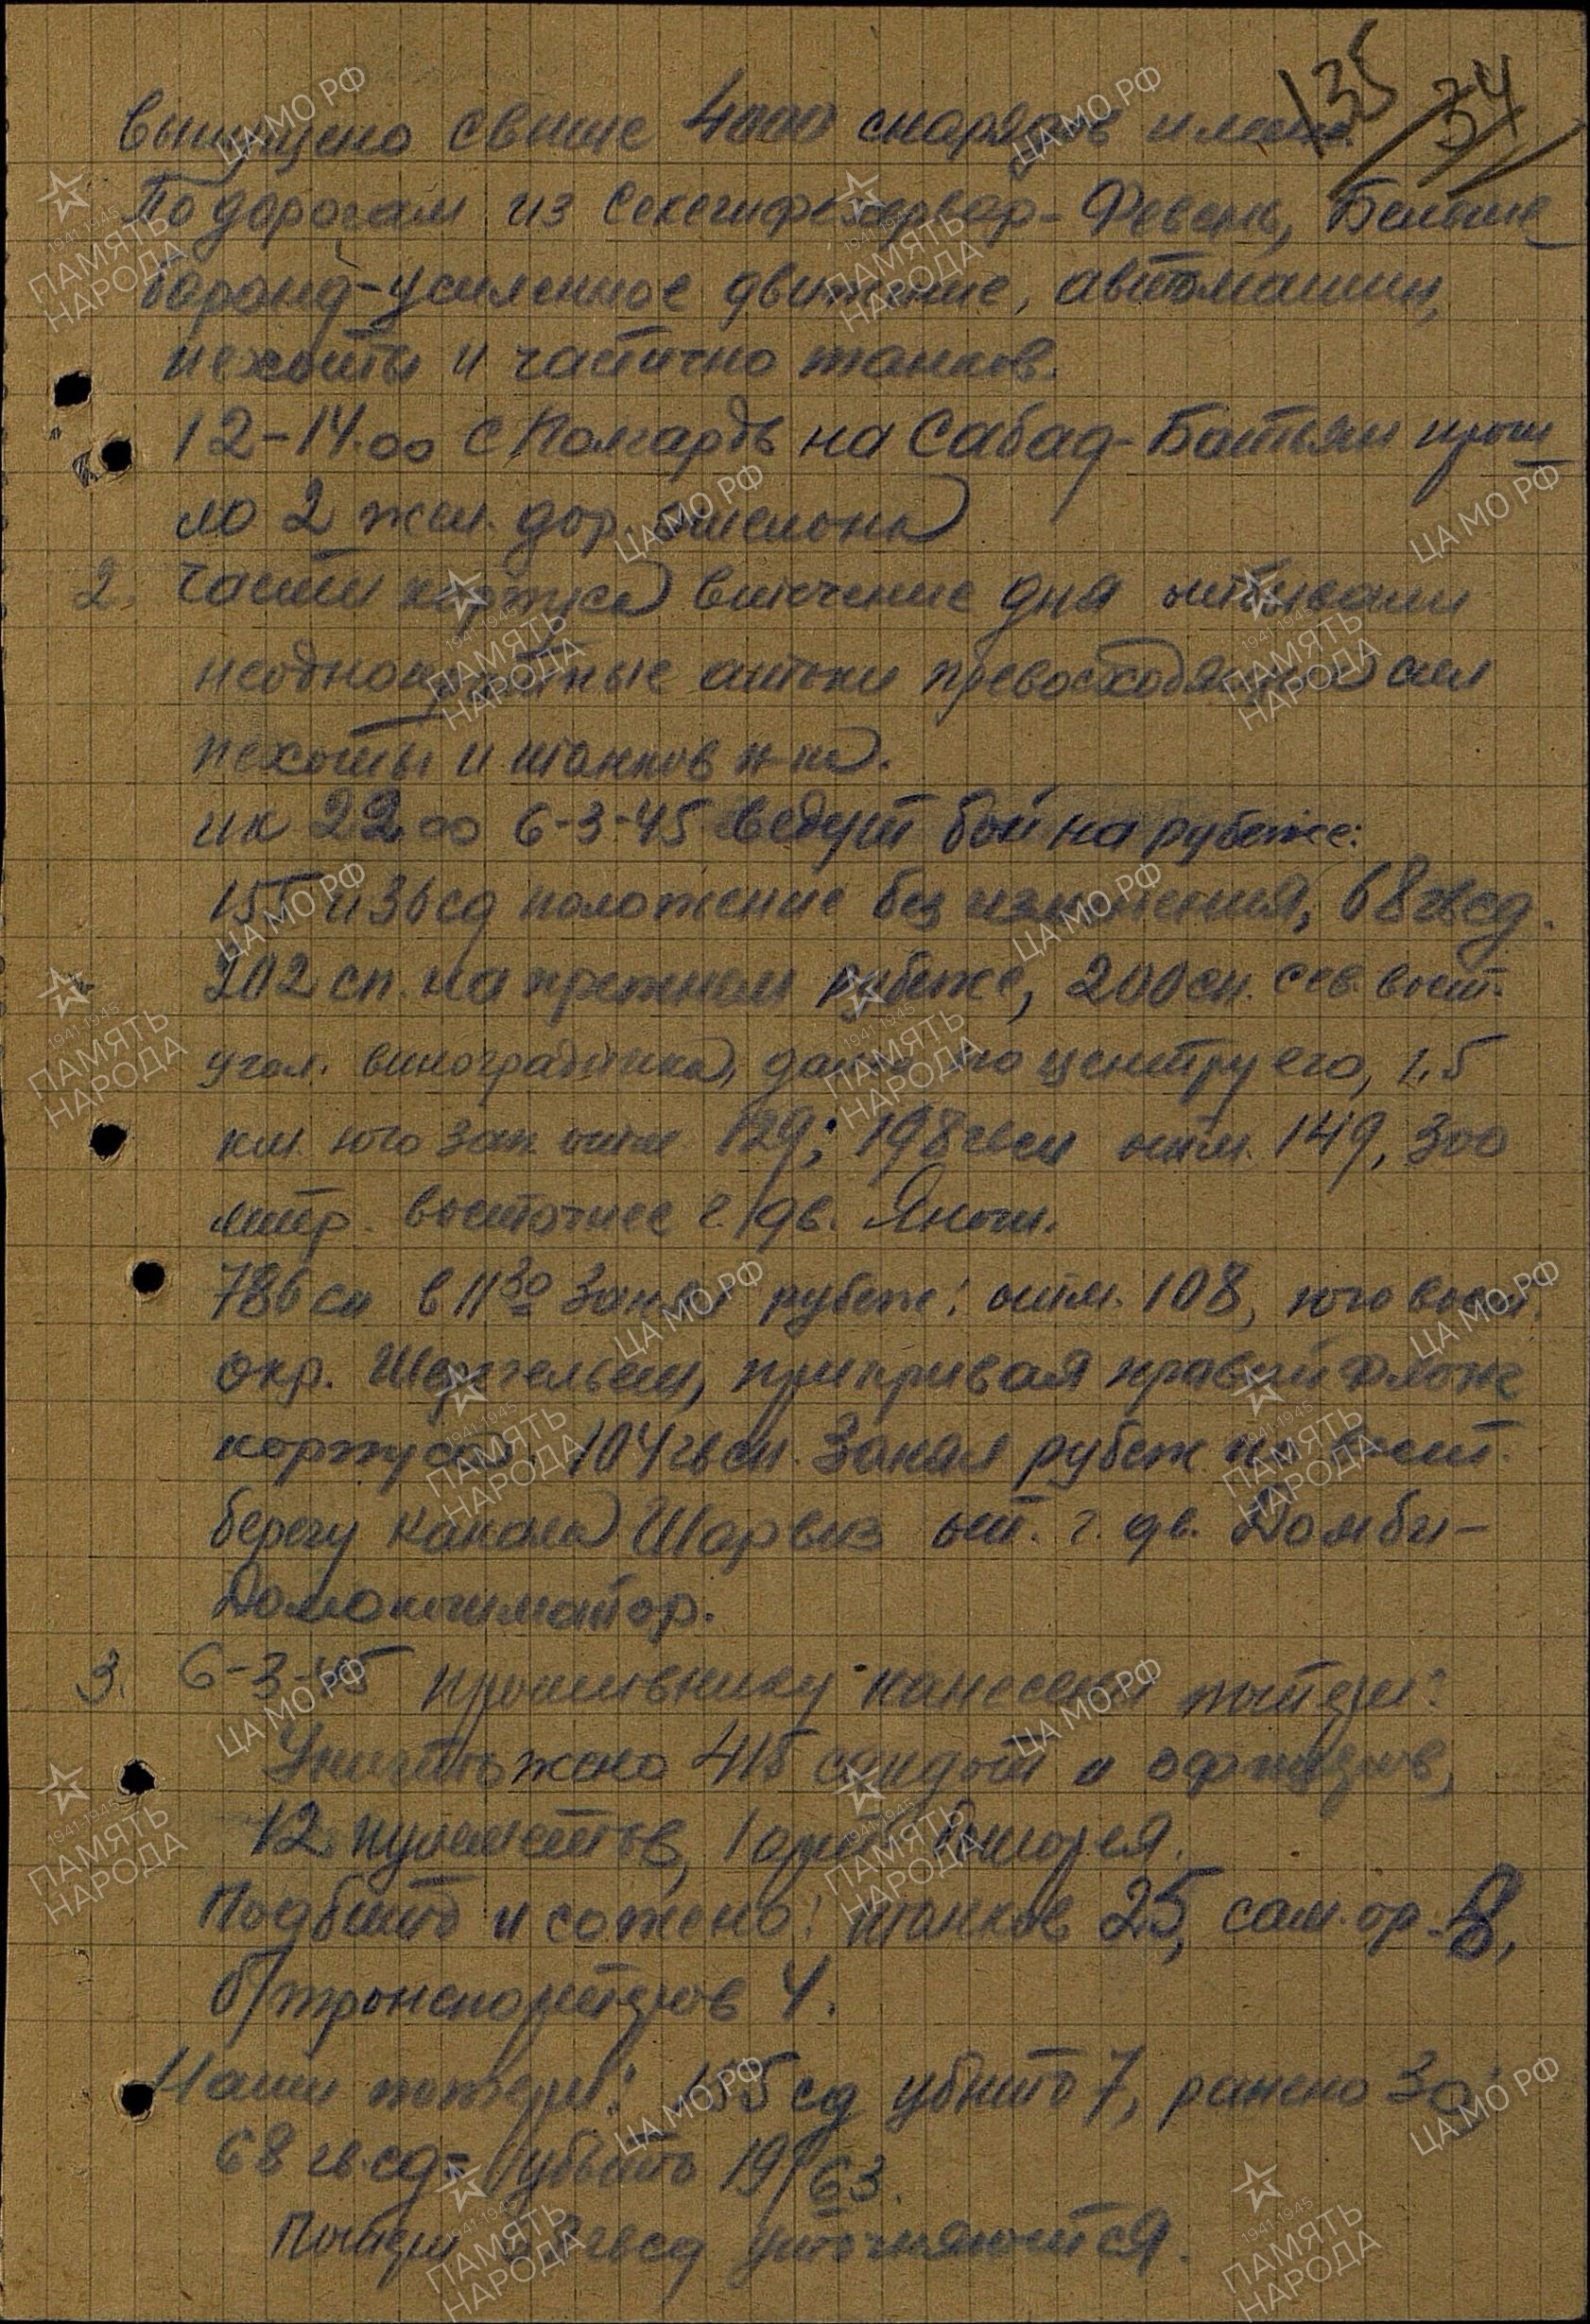 135 34
выпущено свыше 4000 снарядов и мин.
По дорогам из Секешфехервар - Февень, Беллше_
баранд - усиленное движение, автомашин,
пехоты и частично танков.
12-14.00 с Полгардь на Сабад-Батьян прош_
ло 2 жел. дор. эшелона
2. Части корпуса втечение дня отбивали
неоднократные атаки превосходящих сил
пехоты и танков п-ка.
и к 22.00 6-3-45 ведут бой на рубеже:
155 и 36 сд положение без изменения, 68 гвсд.
202 сп. на прежнем рубеже, 200 сп. сев. вост.
угол. виноградника, далее по центру его, 1,5
км. юго зап. отм 129; 198 гвсп отм. 149, 300
мтр. восточнее г. дв. Янош.
786 сп в 11 30 занял рубеж: отм. 108, юго вост.
окр. Шерегельеш, прикривая правый фланг
корпуса, 104 гвсп. Занял рубеж по вост.
берегу канала Шарвиз от. г. дв. Домби-
Шомокошматор.
3. 6-3-45 противнику нанесены потери:
Уничтожено 415 солдат и офицеров,
12 пулеметов, 1 арт. батарея.
Подбито и сожено: танков 25, сам. ор - 8,
б/транспортеров 4.
Наши потери: 155 сд убито 7, ранено 30
68 гв. сд - убито 19/63.
Потери гвсд уточняются.
ЦА МО РФ
1941-1945
ПАМЯТЬ
НАРОДА